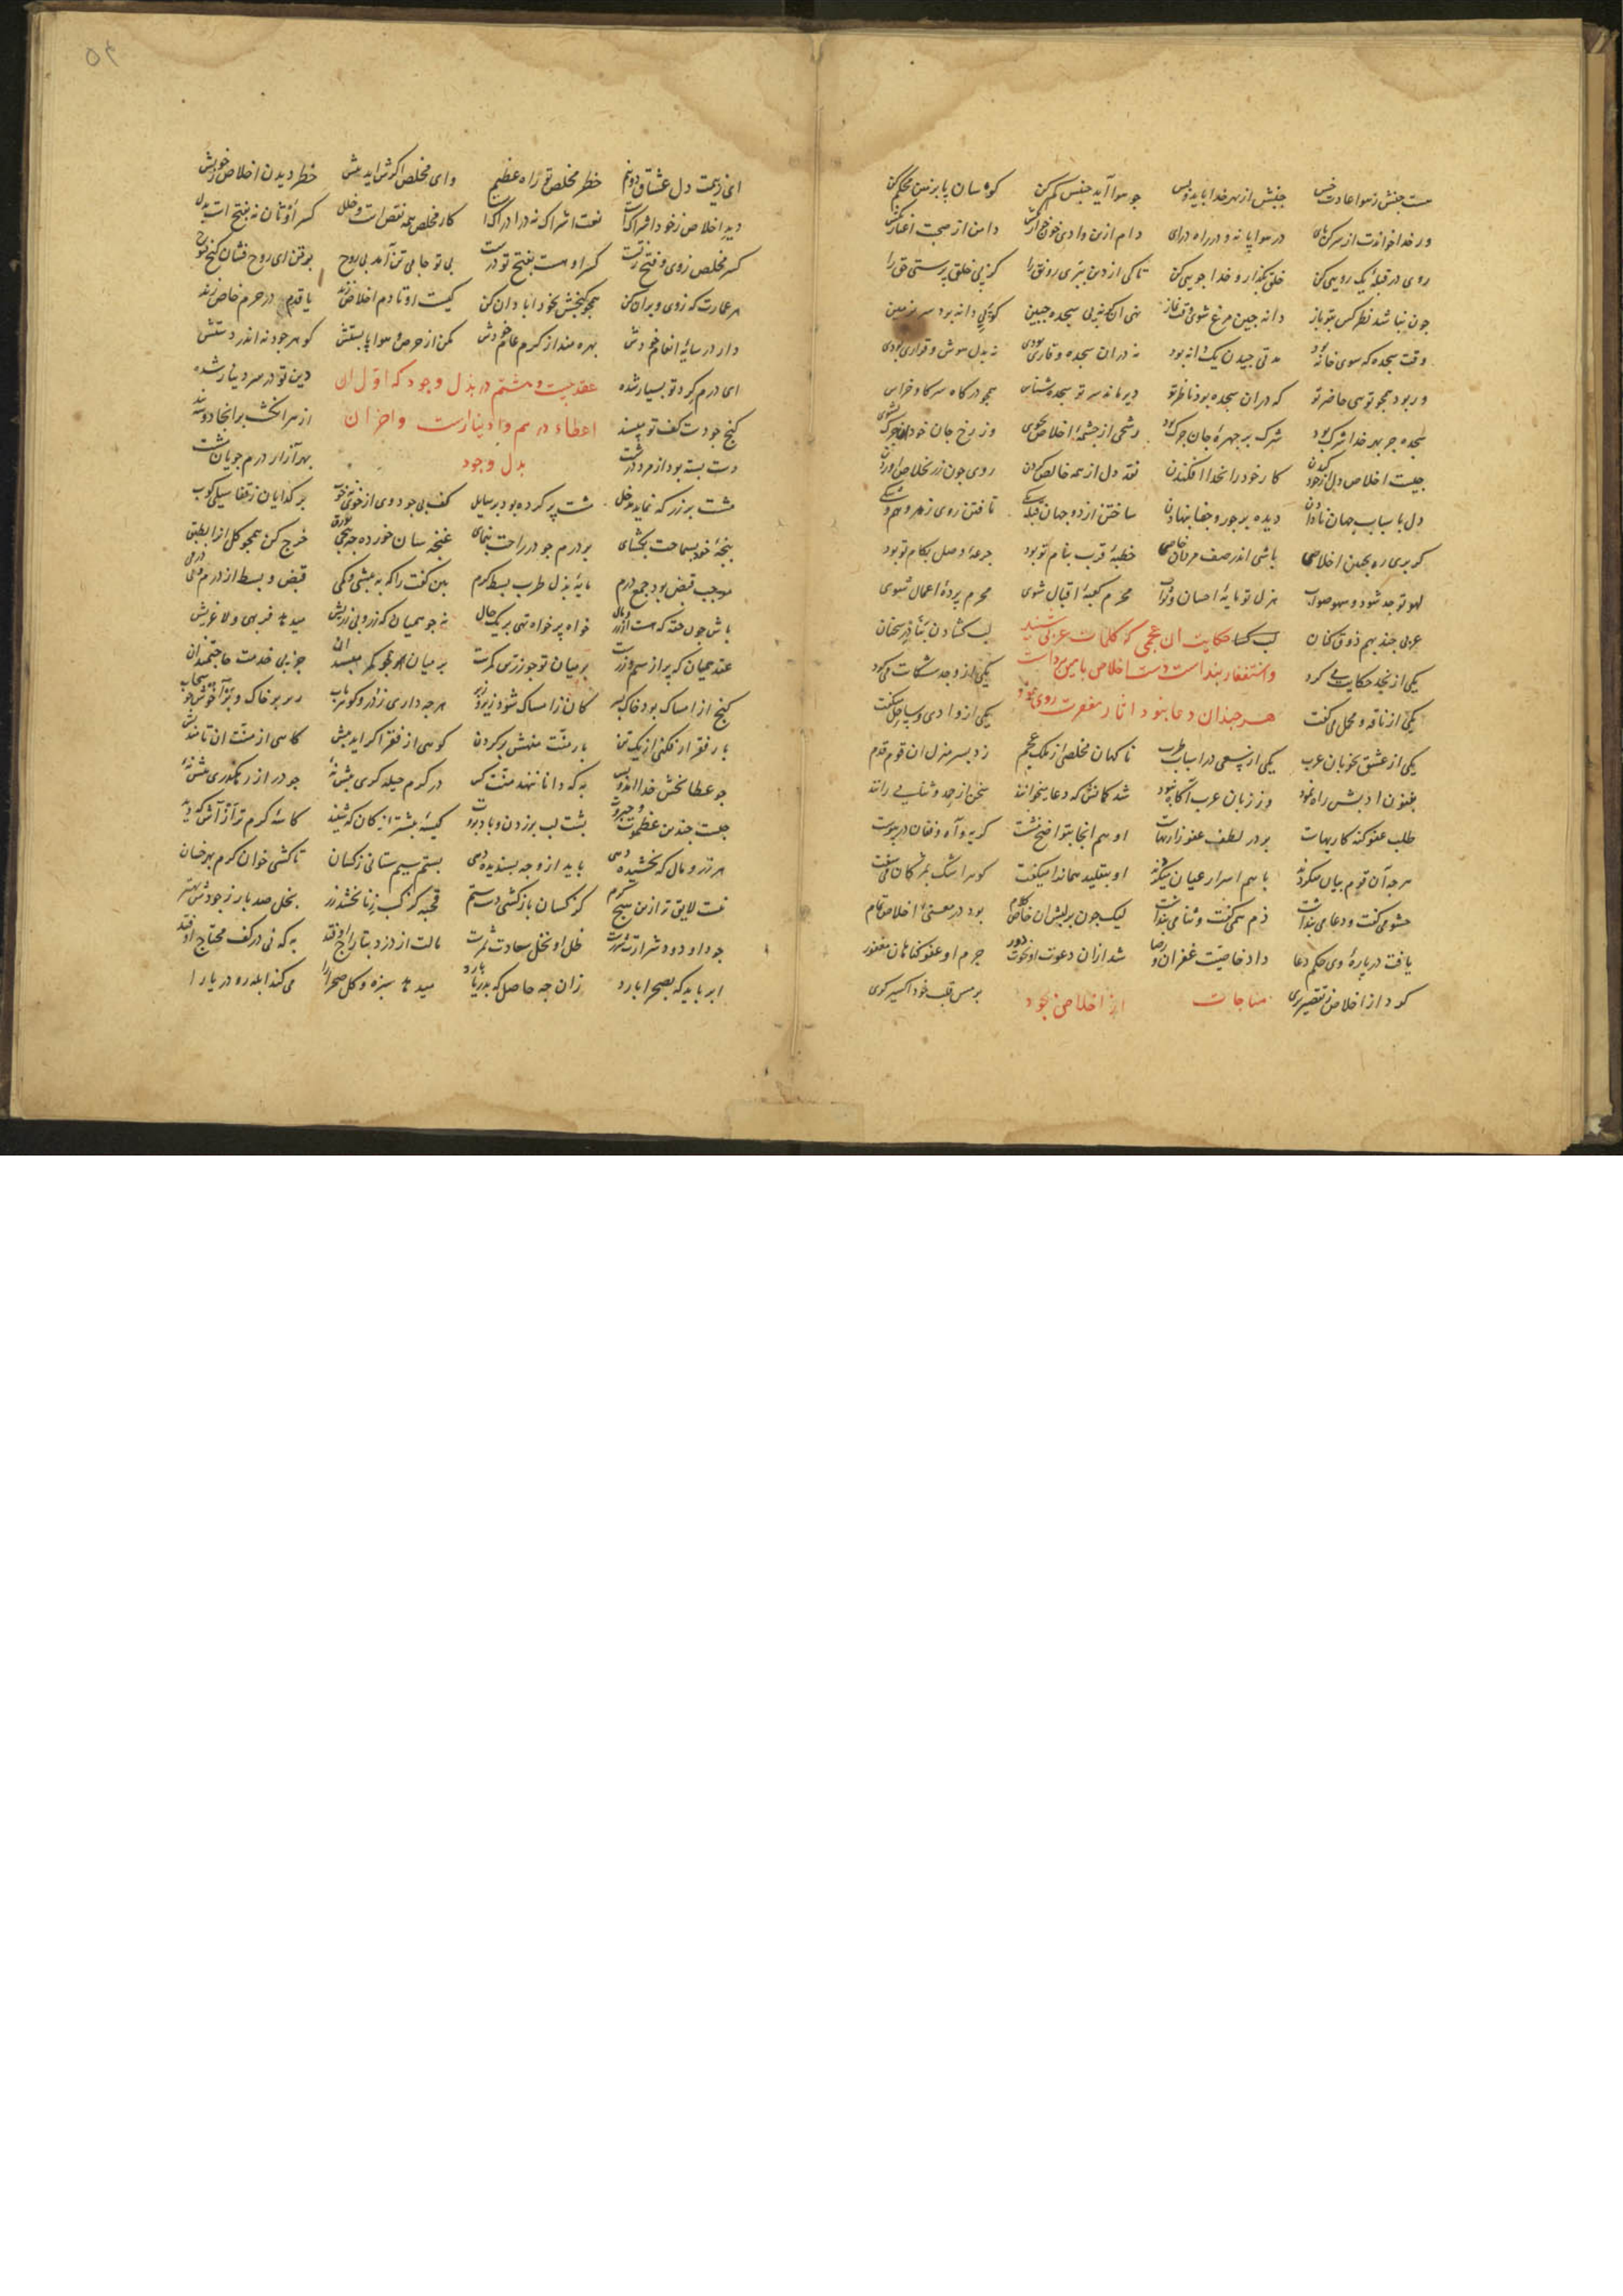 هست جنبش ز هوا عادت خس جنبش از بهر خدا باید و بس جو هوا آید جنبش کم کن کوه سان پا بزمین محکم کن
ور خدا خواندت از سر کن پای در هوا پا نه و در راه درای دام ازین وادی خونخوار کش دامن از صحبت اغیار کش
روی در قبله یک رویی کن خلق بگذار و خدا جویی کن تا کی از دین ببری رونق را کزپی خلق پرستی حق را
چون نباشد نظر کس بتو باز دانه چین مرغ شوی وقت نماز نهی آن کونه پی سجده جبین کز پی دانه برد سر بزمین
وقت سجده که سوی خانه بود مدتی چیدن یک دانه بود نه در آن سجده وقاری بودی نه بدل هوش و قراری بودی
ور بود همچو تویی حاضر تو که در آن سجده بود ناظر تو دیر ماند سر تو سجده شناس همچو در کاه سر گاو خراس
سجده جز بهر خدا شرک بود شرک بر چهره جان چرک بود رشحی از چشمه اخلاص بجوی وز رخ جان خود آن چرک بشوی
چیست اخلاص دل از خود کندن کار خود را بخدا افکندن نقد دل از همه خالص کردن روی چون زر بخلاص آوردن
دل باسباب جهان نادادن دیده بر حور و جنان ننهادن ساختن از دو جهان قبله یکی تافتن روی ز هر وهم و شکی
گر بری ره بچنین اخلاصی باشی اندر صف مردان خاصی خطبه قرب بنام تو بود جرعه وصل بکام تو بود
لهو تو جد شود و سهو صواب هزل تو مایه احسان و ثواب محرم کعبه اقبال شوی محرم پرده اعمال شوی
عربی چند بهم ذوق کنان لب گشا حکایت آن عجمی که کلمات عربی شنید لب گشادند بشیرین سخنان
یکی از نجد حکایت می کرد و استغفار پنداشت دست اخلاص بآمین داشت یکی از وجد شکایت می کرد
یکی از ناقه و محمل می گفت هر چندان دعا نبود آثار مغفرت روی نمود یکی از وادی و ساحل می گفت
یکی از عشق نکویان عرب یکی از سعی در اسباب طرب ناگهان مخلصی از ملک عجم زد بسر منزل آن قوم قدم
بفنون ادبش راه نبود وز زبان عرب آگاه نبود شد گمانش که دعا میخوانند سخن از جد و ثنا می رانند
طلب عفو گنه کاریهاست بر در لطف عفو زاریهاست او هم آنجا بتواضع بنشست گریه و آه و فغان در پیوست
هر چه آن قوم بیان میکردند با هم اسرار عیان میکردند او بتقلید همانها میگفت گوهر اشک بمژگان می سفت
حشو می گفت و دعا می پنداشت ذم همی گفت و ثنا می پنداشت لیک چون بر لبش آن خاص کلام بود در معنی اخلاص تمام
یافت در باره وی حکم دعا داد خاصیت غفران و رضا شد از آن دعوت از نخوت دور جرم او عفو و گناهان مغفور
کرد از اخلاص ز تقصیر بری مناجات از اخلاص بجود بر مس قلب خود اکسیر گری
ای ز بیمت دل عشاق دو نیم خطر مخلص تو راه عظیم وای مخلص اگرش آید پیش خطر دیدن اخلاص ز خویش
دید اخلاص ز خود اشراکست نعت اشراک نه در ادراکست کار مخلص همه نقص است و خلل کسر او تان نه بفتح است بدل
کسر مخلص ز وی و فتح ز تست کسر او هست بفتح تو درست بی تو جامی تن آمد بی روح بر تن ای روح فشان گنج فتوح
هر عمارت که ز وی ویران کن همچو گنجش بخود آبادان کن کیست او تا دم اخلاص زند یا قدم در حرم خاص زند
دار در سایه انعام خودش بهره مند از کرم عام خودش مکن از حرص و هوا پا بستش گوهر جود نه اندر دستش
ای درم گرد تو بسیار شده عقد بیست و هشتم در بذل وجود که اول آن دین تو در سر دینار شده
گنج جودست کف تو بپسند اعطاء درهم و دینارست و آخر آن از سر انگشت بر آنجا دو سه بند
دست بسته بود از مرد درشت بذل وجود بهر آزار درم جویان مشت
مشت بر زر که نماید مدخل مشت پر کرده بود بر سایل کف بی جود وی از خوی نه خوب بر گدایان ز قفا سیلی کوب
پنجه خود بسماحت بگشای بر درم جود راحت بنمای غنچه سان خورده چه پیچی بورق خرج کن همچو گل آنرا بطبق
موجب قبض بود جمع درم مایه بذل طرب بسط کرم بین کفت را که به بیشی و کمی قبض و بسط از درم و بی درمی
باش چون حقه که هست از زر و مال خواه پر خواه تهی بر یک حال نه چو همیان که ز رو بی زریش میدهد فربهی و لاغریش
عقد همیان که پر از سیم و زرست بر میان تو چو زرین کمرست بر میان همچو کمر مپسند آن جز پی خدمت حاجتمندان
گنج از امساک بود خاک بسر کان ز امساک شود زیر و زبر هر چه داری ز زر و گوهر ناب ریز بر خاک و بر آور چو سحاب
بار فقر ار فکنی از یک تن بار منت منهش بر گردن کوهی از فقر اگر آید پیش کاهی از منت آن تا نه بیش
چو عطا بخش خدا آمد و بس به که دانا ننهد منت کس در کرم حیله گری پیشه نه جو در از رهگذری پیش نه
چیست چندین عظموت و جبروت پشت لب بر زدن و باد بروت کیسه بیشتر از کان که شنید کاسه گرم تر از آش که دید
هر زر و مال که بخشیده دهی باید از وجه پسندیده دهی بستم سیم ستانی ز کسان تا کشی خوان کرم بهر خسان
نیست لایق تر ازین هیچ کرم کز کسان بازکشی دست ستم قحبه کز کسب زنا بخشد زر بخل صد بار ز جودش بهتر
جود او دود شرارت ثمرست ظل او نخل سعادت ثمرست مالت از دزد بتاراج افتد به که نی در کف محتاج افتد
ابر باید که بصحرا بارد زان چه حاصل که بدریا بارد میدهد سبزه و گل صحرا را می کند آبله رو دریا را